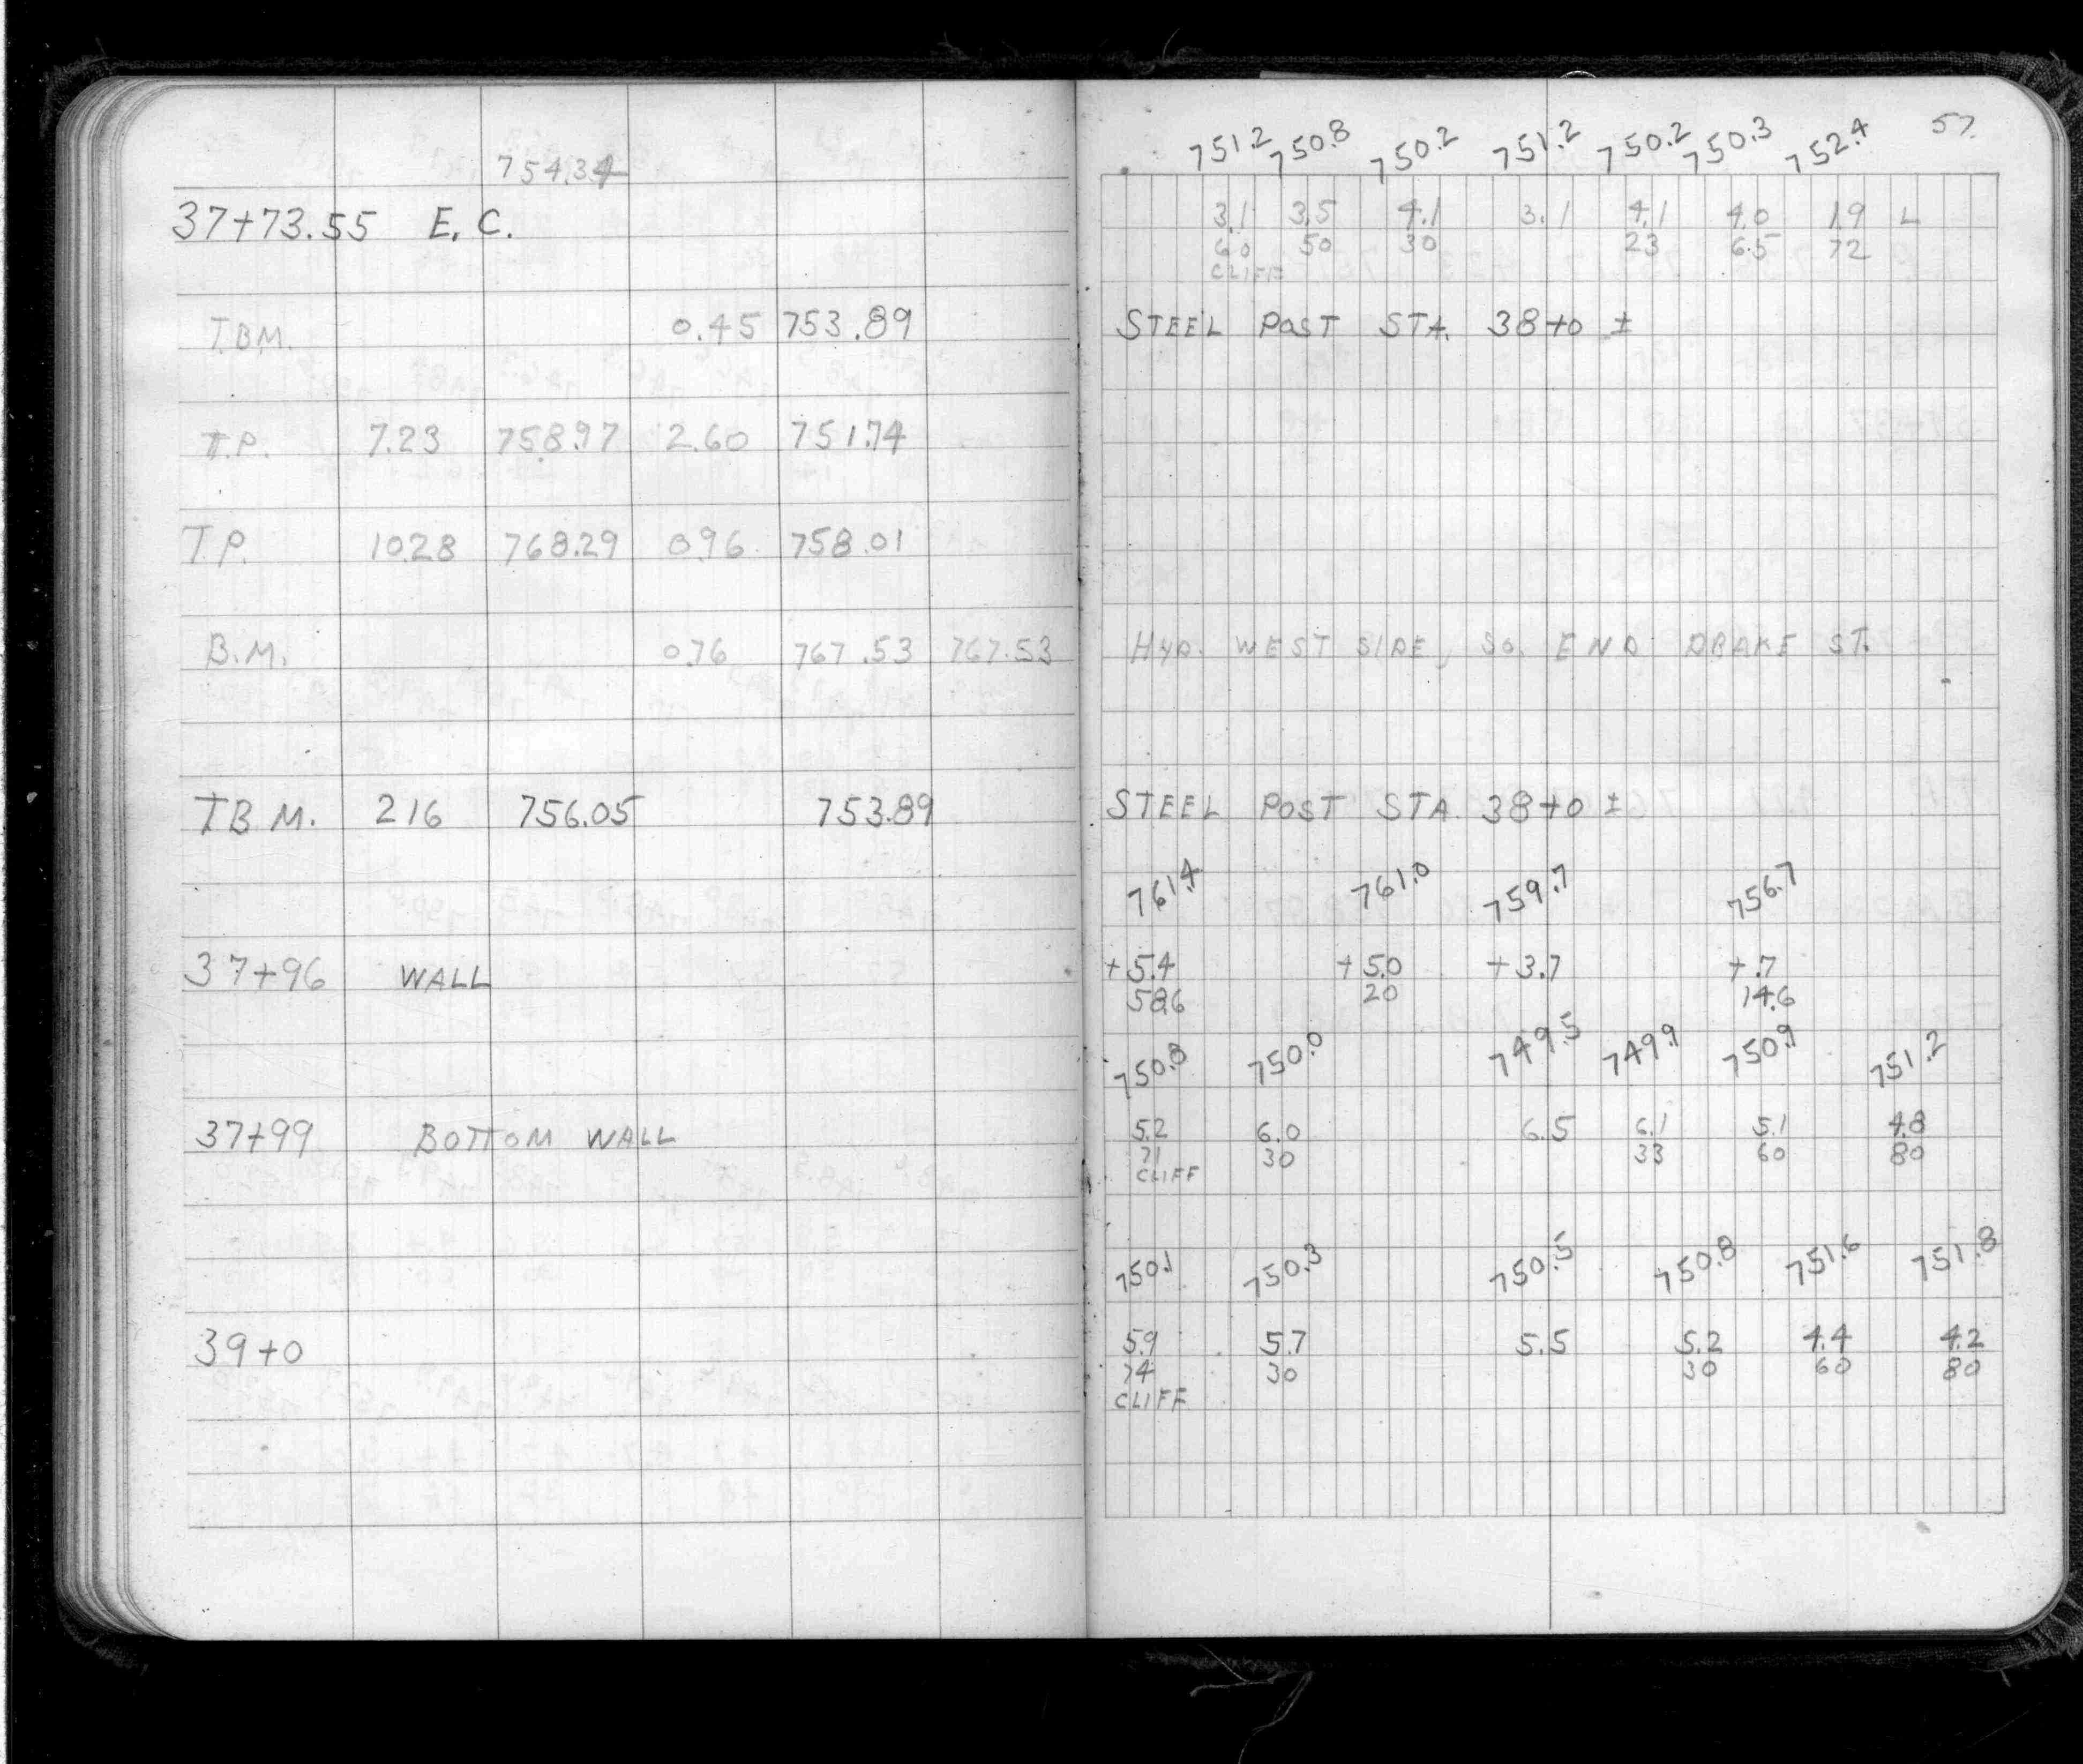 754.34
37+73.55 E.C.
T.B.M. 0.45 753.89
T.P. 7.23 758.97 2.60 751.74
T.P. 10.28 768.29 0.96 758.01
B.M. 0.76 767.53 767.53
T.B.M. 2.16 756.05 753.89
37+96 WALL
37+99 BOTTOM WALL
39+0
57.
751.2 750.8 750.2 751.2 750.2 750.3 752.4
3.1 3.5 4.1 3.1 4.1 4.0 1.9 L
60 50 30 23 65 72
CLIFF
STEEL POST STA. 38+0 ±
HYD. WEST SIDE, SO. END DRAKE ST.
STEEL POST STA. 38+0 ±
761.4 761.0 759.7 756.7
+5.4 +5.0 +3.7 +.7
58.6 20 14.6
750.8 750.0 749.5 749.9 750.9 751.2
5.2 6.0 6.5 6.1 5.1 4.8
71 30 33 60 80
CLIFF
750.1 750.3 750.5 750.8 751.6 751.8
5.9 5.7 5.5 5.2 4.4 4.2
74 30 30 60 80
CLIFF